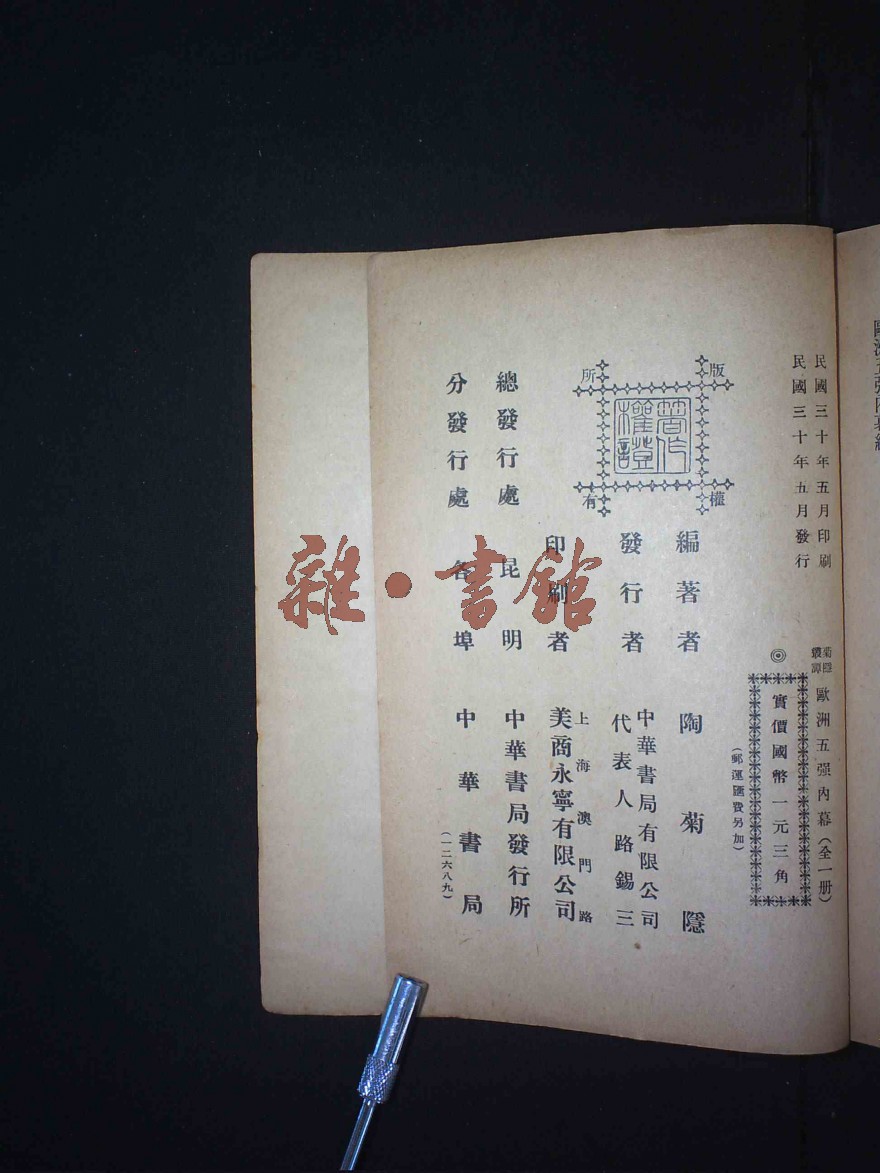 民國三十年五月印刷
民國三十年五月發行
菊隱
叢譚
歐洲五强內幕(全一册)
◎
實價國幣一元三角
(郵運匯費另加)
版權所有
著作
權證
編著者 陶菊隱
發行者 中華書局有限公司
代表人路錫三
印刷者 上海澳門路
美商永寧有限公司
總發行處 昆明 中華書局發行所
分發行處 各埠 中華書局
(一二六八九)
雜·書館